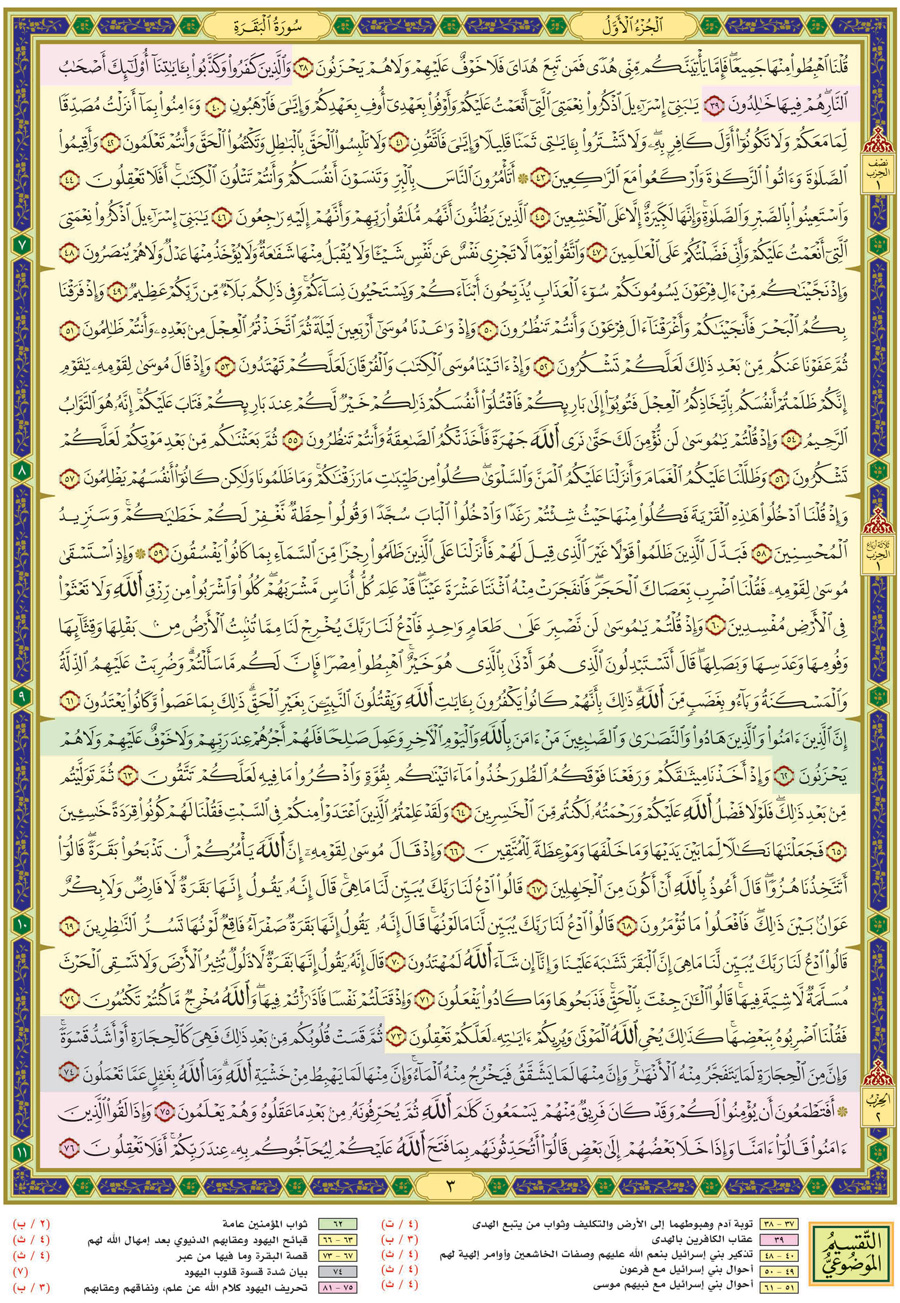 الجُزْءُ الأَوَّلُ
سُورَةُ الْبَقَرَةِ
قُلْنَا ٱهْبِطُوا۟ مِنْهَا جَمِيعًۭا ۖ فَإِمَّا يَأْتِيَنَّكُم مِّنِّى هُدًۭى فَمَن تَبِعَ هُدَاىَ فَلَا خَوْفٌ عَلَيْهِمْ وَلَا هُمْ يَحْزَنُونَ ٣٨ وَٱلَّذِينَ كَفَرُوا۟ وَكَذَّبُوا۟ بِـَٔايَـٰتِنَآ أُو۟لَـٰٓئِكَ أَصْحَـٰبُ
ٱلنَّارِ ۖ هُمْ فِيهَا خَـٰلِدُونَ ٣٩ يَـٰبَنِىٓ إِسْرَٰٓءِيلَ ٱذْكُرُوا۟ نِعْمَتِىَ ٱلَّتِىٓ أَنْعَمْتُ عَلَيْكُمْ وَأَوْفُوا۟ بِعَهْدِىٓ أُوفِ بِعَهْدِكُمْ وَإِيَّـٰىَ فَٱرْهَبُونِ ٤٠ وَءَامِنُوا۟ بِمَآ أَنزَلْتُ مُصَدِّقًۭا
لِّمَا مَعَكُمْ وَلَا تَكُونُوٓا۟ أَوَّلَ كَافِرٍۭ بِهِۦ ۖ وَلَا تَشْتَرُوا۟ بِـَٔايَـٰتِى ثَمَنًۭا قَلِيلًۭا وَإِيَّـٰىَ فَٱتَّقُونِ ٤١ وَلَا تَلْبِسُوا۟ ٱلْحَقَّ بِٱلْبَـٰطِلِ وَتَكْتُمُوا۟ ٱلْحَقَّ وَأَنتُمْ تَعْلَمُونَ ٤٢ وَأَقِيمُوا۟
ٱلصَّلَوٰةَ وَءَاتُوا۟ ٱلزَّكَوٰةَ وَٱرْكَعُوا۟ مَعَ ٱلرَّٰكِعِينَ ٤٣ ۞ أَتَأْمُرُونَ ٱلنَّاسَ بِٱلْبِرِّ وَتَنسَوْنَ أَنفُسَكُمْ وَأَنتُمْ تَتْلُونَ ٱلْكِتَـٰبَ ۚ أَفَلَا تَعْقِلُونَ ٤٤
وَٱسْتَعِينُوا۟ بِٱلصَّبْرِ وَٱلصَّلَوٰةِ ۚ وَإِنَّهَا لَكَبِيرَةٌ إِلَّا عَلَى ٱلْخَـٰشِعِينَ ٤٥ ٱلَّذِينَ يَظُنُّونَ أَنَّهُم مُّلَـٰقُوا۟ رَبِّهِمْ وَأَنَّهُمْ إِلَيْهِ رَٰجِعُونَ ٤٦ يَـٰبَنِىٓ إِسْرَٰٓءِيلَ ٱذْكُرُوا۟ نِعْمَتِىَ
ٱلَّتِىٓ أَنْعَمْتُ عَلَيْكُمْ وَأَنِّى فَضَّلْتُكُمْ عَلَى ٱلْعَـٰلَمِينَ ٤٧ وَٱتَّقُوا۟ يَوْمًۭا لَّا تَجْزِى نَفْسٌ عَن نَّفْسٍۢ شَيْـًۭٔا وَلَا يُقْبَلُ مِنْهَا شَفَـٰعَةٌۭ وَلَا يُؤْخَذُ مِنْهَا عَدْلٌۭ وَلَا هُمْ يُنصَرُونَ ٤٨
وَإِذْ نَجَّيْنَـٰكُم مِّنْ ءَالِ فِرْعَوْنَ يَسُومُونَكُمْ سُوٓءَ ٱلْعَذَابِ يُذَبِّحُونَ أَبْنَآءَكُمْ وَيَسْتَحْيُونَ نِسَآءَكُمْ ۚ وَفِى ذَٰلِكُم بَلَآءٌۭ مِّن رَّبِّكُمْ عَظِيمٌۭ ٤٩ وَإِذْ فَرَقْنَا
بِكُمُ ٱلْبَحْرَ فَأَنجَيْنَـٰكُمْ وَأَغْرَقْنَآ ءَالَ فِرْعَوْنَ وَأَنتُمْ تَنظُرُونَ ٥٠ وَإِذْ وَٰعَدْنَا مُوسَىٰٓ أَرْبَعِينَ لَيْلَةًۭ ثُمَّ ٱتَّخَذْتُمُ ٱلْعِجْلَ مِنۢ بَعْدِهِۦ وَأَنتُمْ ظَـٰلِمُونَ ٥١
ثُمَّ عَفَوْنَا عَنكُم مِّنۢ بَعْدِ ذَٰلِكَ لَعَلَّكُمْ تَشْكُرُونَ ٥٢ وَإِذْ ءَاتَيْنَا مُوسَى ٱلْكِتَـٰبَ وَٱلْفُرْقَانَ لَعَلَّكُمْ تَهْتَدُونَ ٥٣ وَإِذْ قَالَ مُوسَىٰ لِقَوْمِهِۦ يَـٰقَوْمِ
إِنَّكُمْ ظَلَمْتُمْ أَنفُسَكُم بِٱتِّخَاذِكُمُ ٱلْعِجْلَ فَتُوبُوٓا۟ إِلَىٰ بَارِئِكُمْ فَٱقْتُلُوٓا۟ أَنفُسَكُمْ ذَٰلِكُمْ خَيْرٌۭ لَّكُمْ عِندَ بَارِئِكُمْ فَتَابَ عَلَيْكُمْ ۚ إِنَّهُۥ هُوَ ٱلتَّوَّابُ
ٱلرَّحِيمُ ٥٤ وَإِذْ قُلْتُمْ يَـٰمُوسَىٰ لَن نُّؤْمِنَ لَكَ حَتَّىٰ نَرَى ٱللَّهَ جَهْرَةًۭ فَأَخَذَتْكُمُ ٱلصَّـٰعِقَةُ وَأَنتُمْ تَنظُرُونَ ٥٥ ثُمَّ بَعَثْنَـٰكُم مِّنۢ بَعْدِ مَوْتِكُمْ لَعَلَّكُمْ
تَشْكُرُونَ ٥٦ وَظَلَّلْنَا عَلَيْكُمُ ٱلْغَمَامَ وَأَنزَلْنَا عَلَيْكُمُ ٱلْمَنَّ وَٱلسَّلْوَىٰ ۖ كُلُوا۟ مِن طَيِّبَـٰتِ مَا رَزَقْنَـٰكُمْ ۖ وَمَا ظَلَمُونَا وَلَـٰكِن كَانُوٓا۟ أَنفُسَهُمْ يَظْلِمُونَ ٥٧
وَإِذْ قُلْنَا ٱدْخُلُوا۟ هَـٰذِهِ ٱلْقَرْيَةَ فَكُلُوا۟ مِنْهَا حَيْثُ شِئْتُمْ رَغَدًۭا وَٱدْخُلُوا۟ ٱلْبَابَ سُجَّدًۭا وَقُولُوا۟ حِطَّةٌۭ نَّغْفِرْ لَكُمْ خَطَـٰيَـٰكُمْ ۚ وَسَنَزِيدُ
ٱلْمُحْسِنِينَ ٥٨ فَبَدَّلَ ٱلَّذِينَ ظَلَمُوا۟ قَوْلًا غَيْرَ ٱلَّذِى قِيلَ لَهُمْ فَأَنزَلْنَا عَلَى ٱلَّذِينَ ظَلَمُوا۟ رِجْزًۭا مِّنَ ٱلسَّمَآءِ بِمَا كَانُوا۟ يَفْسُقُونَ ٥٩ ۞ وَإِذِ ٱسْتَسْقَىٰ
مُوسَىٰ لِقَوْمِهِۦ فَقُلْنَا ٱضْرِب بِّعَصَاكَ ٱلْحَجَرَ ۖ فَٱنفَجَرَتْ مِنْهُ ٱثْنَتَا عَشْرَةَ عَيْنًۭا ۖ قَدْ عَلِمَ كُلُّ أُنَاسٍۢ مَّشْرَبَهُمْ ۖ كُلُوا۟ وَٱشْرَبُوا۟ مِن رِّزْقِ ٱللَّهِ وَلَا تَعْثَوْا۟
فِى ٱلْأَرْضِ مُفْسِدِينَ ٦٠ وَإِذْ قُلْتُمْ يَـٰمُوسَىٰ لَن نَّصْبِرَ عَلَىٰ طَعَامٍۢ وَٰحِدٍۢ فَٱدْعُ لَنَا رَبَّكَ يُخْرِجْ لَنَا مِمَّا تُنۢبِتُ ٱلْأَرْضُ مِنۢ بَقْلِهَا وَقِثَّآئِهَا
وَفُومِهَا وَعَدَسِهَا وَبَصَلِهَا ۖ قَالَ أَتَسْتَبْدِلُونَ ٱلَّذِى هُوَ أَدْنَىٰ بِٱلَّذِى هُوَ خَيْرٌ ۚ ٱهْبِطُوا۟ مِصْرًۭا فَإِنَّ لَكُم مَّا سَأَلْتُمْ ۗ وَضُرِبَتْ عَلَيْهِمُ ٱلذِّلَّةُ
وَٱلْمَسْكَنَةُ وَبَآءُو بِغَضَبٍۢ مِّنَ ٱللَّهِ ۗ ذَٰلِكَ بِأَنَّهُمْ كَانُوا۟ يَكْفُرُونَ بِـَٔايَـٰتِ ٱللَّهِ وَيَقْتُلُونَ ٱلنَّبِيِّـۧنَ بِغَيْرِ ٱلْحَقِّ ۗ ذَٰلِكَ بِمَا عَصَوا۟ وَّكَانُوا۟ يَعْتَدُونَ ٦١
إِنَّ ٱلَّذِينَ ءَامَنُوا۟ وَٱلَّذِينَ هَادُوا۟ وَٱلنَّصَـٰرَىٰ وَٱلصَّـٰبِـِٔينَ مَنْ ءَامَنَ بِٱللَّهِ وَٱلْيَوْمِ ٱلْـَٔاخِرِ وَعَمِلَ صَـٰلِحًۭا فَلَهُمْ أَجْرُهُمْ عِندَ رَبِّهِمْ وَلَا خَوْفٌ عَلَيْهِمْ وَلَا هُمْ
يَحْزَنُونَ ٦٢ وَإِذْ أَخَذْنَا مِيثَـٰقَكُمْ وَرَفَعْنَا فَوْقَكُمُ ٱلطُّورَ خُذُوا۟ مَآ ءَاتَيْنَـٰكُم بِقُوَّةٍۢ وَٱذْكُرُوا۟ مَا فِيهِ لَعَلَّكُمْ تَتَّقُونَ ٦٣ ثُمَّ تَوَلَّيْتُم
مِّنۢ بَعْدِ ذَٰلِكَ ۖ فَلَوْلَا فَضْلُ ٱللَّهِ عَلَيْكُمْ وَرَحْمَتُهُۥ لَكُنتُم مِّنَ ٱلْخَـٰسِرِينَ ٦٤ وَلَقَدْ عَلِمْتُمُ ٱلَّذِينَ ٱعْتَدَوْا۟ مِنكُمْ فِى ٱلسَّبْتِ فَقُلْنَا لَهُمْ كُونُوا۟ قِرَدَةً خَـٰسِـِٔينَ
٦٥ فَجَعَلْنَـٰهَا نَكَـٰلًۭا لِّمَا بَيْنَ يَدَيْهَا وَمَا خَلْفَهَا وَمَوْعِظَةًۭ لِّلْمُتَّقِينَ ٦٦ وَإِذْ قَالَ مُوسَىٰ لِقَوْمِهِۦٓ إِنَّ ٱللَّهَ يَأْمُرُكُمْ أَن تَذْبَحُوا۟ بَقَرَةًۭ ۖ قَالُوٓا۟
أَتَتَّخِذُنَا هُزُوًۭا ۖ قَالَ أَعُوذُ بِٱللَّهِ أَنْ أَكُونَ مِنَ ٱلْجَـٰهِلِينَ ٦٧ قَالُوا۟ ٱدْعُ لَنَا رَبَّكَ يُبَيِّن لَّنَا مَا هِىَ ۚ قَالَ إِنَّهُۥ يَقُولُ إِنَّهَا بَقَرَةٌۭ لَّا فَارِضٌۭ وَلَا بِكْرٌ
عَوَانٌۢ بَيْنَ ذَٰلِكَ ۖ فَٱفْعَلُوا۟ مَا تُؤْمَرُونَ ٦٨ قَالُوا۟ ٱدْعُ لَنَا رَبَّكَ يُبَيِّن لَّنَا مَا لَوْنُهَا ۚ قَالَ إِنَّهُۥ يَقُولُ إِنَّهَا بَقَرَةٌۭ صَفْرَآءُ فَاقِعٌۭ لَّوْنُهَا تَسُرُّ ٱلنَّـٰظِرِينَ ٦٩
قَالُوا۟ ٱدْعُ لَنَا رَبَّكَ يُبَيِّن لَّنَا مَا هِىَ إِنَّ ٱلْبَقَرَ تَشَـٰبَهَ عَلَيْنَا وَإِنَّآ إِن شَآءَ ٱللَّهُ لَمُهْتَدُونَ ٧٠ قَالَ إِنَّهُۥ يَقُولُ إِنَّهَا بَقَرَةٌۭ لَّا ذَلُولٌۭ تُثِيرُ ٱلْأَرْضَ وَلَا تَسْقِى ٱلْحَرْثَ
مُسَلَّمَةٌۭ لَّا شِيَةَ فِيهَا ۚ قَالُوا۟ ٱلْـَٔـٰنَ جِئْتَ بِٱلْحَقِّ ۚ فَذَبَحُوهَا وَمَا كَادُوا۟ يَفْعَلُونَ ٧١ وَإِذْ قَتَلْتُمْ نَفْسًۭا فَٱدَّٰرَْٰٔتُمْ فِيهَا ۖ وَٱللَّهُ مُخْرِجٌۭ مَّا كُنتُمْ تَكْتُمُونَ ٧٢
فَقُلْنَا ٱضْرِبُوهُ بِبَعْضِهَا ۚ كَذَٰلِكَ يُحْىِ ٱللَّهُ ٱلْمَوْتَىٰ وَيُرِيكُمْ ءَايَـٰتِهِۦ لَعَلَّكُمْ تَعْقِلُونَ ٧٣ ثُمَّ قَسَتْ قُلُوبُكُم مِّنۢ بَعْدِ ذَٰلِكَ فَهِىَ كَٱلْحِجَارَةِ أَوْ أَشَدُّ قَسْوَةًۭ ۚ
وَإِنَّ مِنَ ٱلْحِجَارَةِ لَمَا يَتَفَجَّرُ مِنْهُ ٱلْأَنْهَـٰرُ ۚ وَإِنَّ مِنْهَا لَمَا يَشَّقَّقُ فَيَخْرُجُ مِنْهُ ٱلْمَآءُ ۚ وَإِنَّ مِنْهَا لَمَا يَهْبِطُ مِنْ خَشْيَةِ ٱللَّهِ ۗ وَمَا ٱللَّهُ بِغَـٰفِلٍ عَمَّا تَعْمَلُونَ ٧٤
۞ أَفَتَطْمَعُونَ أَن يُؤْمِنُوا۟ لَكُمْ وَقَدْ كَانَ فَرِيقٌۭ مِّنْهُمْ يَسْمَعُونَ كَلَـٰمَ ٱللَّهِ ثُمَّ يُحَرِّفُونَهُۥ مِنۢ بَعْدِ مَا عَقَلُوهُ وَهُمْ يَعْلَمُونَ ٧٥ وَإِذَا لَقُوا۟ ٱلَّذِينَ
ءَامَنُوا۟ قَالُوٓا۟ ءَامَنَّا وَإِذَا خَلَا بَعْضُهُمْ إِلَىٰ بَعْضٍۢ قَالُوٓا۟ أَتُحَدِّثُونَهُم بِمَا فَتَحَ ٱللَّهُ عَلَيْكُمْ لِيُحَآجُّوكُم بِهِۦ عِندَ رَبِّكُمْ ۚ أَفَلَا تَعْقِلُونَ ٧٦
نصف الحزب ١
ثلاثة أرباع الحزب ١
الحزب ٢
٧
٨
٩
١٠
١١
٣
التَّقْسِيمُ المَوْضُوعِيُّ
٣٧ - ٣٨ توبة آدم وهبوطهما إلى الأرض والتكليف وثواب من يتبع الهدى (٤ / ت)
٣٩ عقاب الكافرين بالهدى (٣ / ب)
٤٠ - ٤٨ تذكير بني إسرائيل بنعم الله عليهم وصفات الخاشعين وأوامر إلهية لهم (٤ / ث)
٤٩ - ٥٠ أحوال بني إسرائيل مع فرعون (٤ / ث)
٥١ - ٦١ أحوال بني إسرائيل مع نبيهم موسى (٤ / ث)
٦٢ ثواب المؤمنين عامة (٢ / ب)
٦٣ - ٦٦ قبائح اليهود وعقابهم الدنيوي بعد إمهال الله لهم (٤ / ث)
٦٧ - ٧٣ قصة البقرة وما فيها من عبر (٤ / ث)
٧٤ بيان شدة قسوة قلوب اليهود (٧)
٧٥ - ٨١ تحريف اليهود كلام الله عن علم، ونفاقهم وعقابهم (٣ / ب)